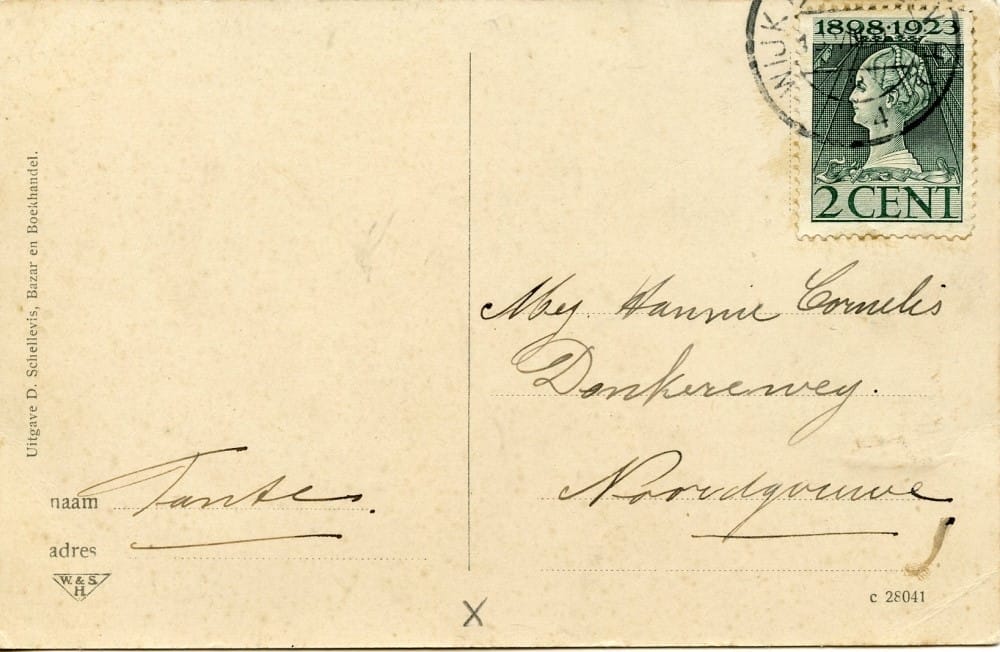 Uitgave D. Schellevis, Bazar en Boekhandel.
naam Tante.
adres
W. & S.
H
X
WIJK
4
1898·1923
2 CENT
Mej. Hannie Cornelis
Donkereweg.
Noordgouwe
c 28041